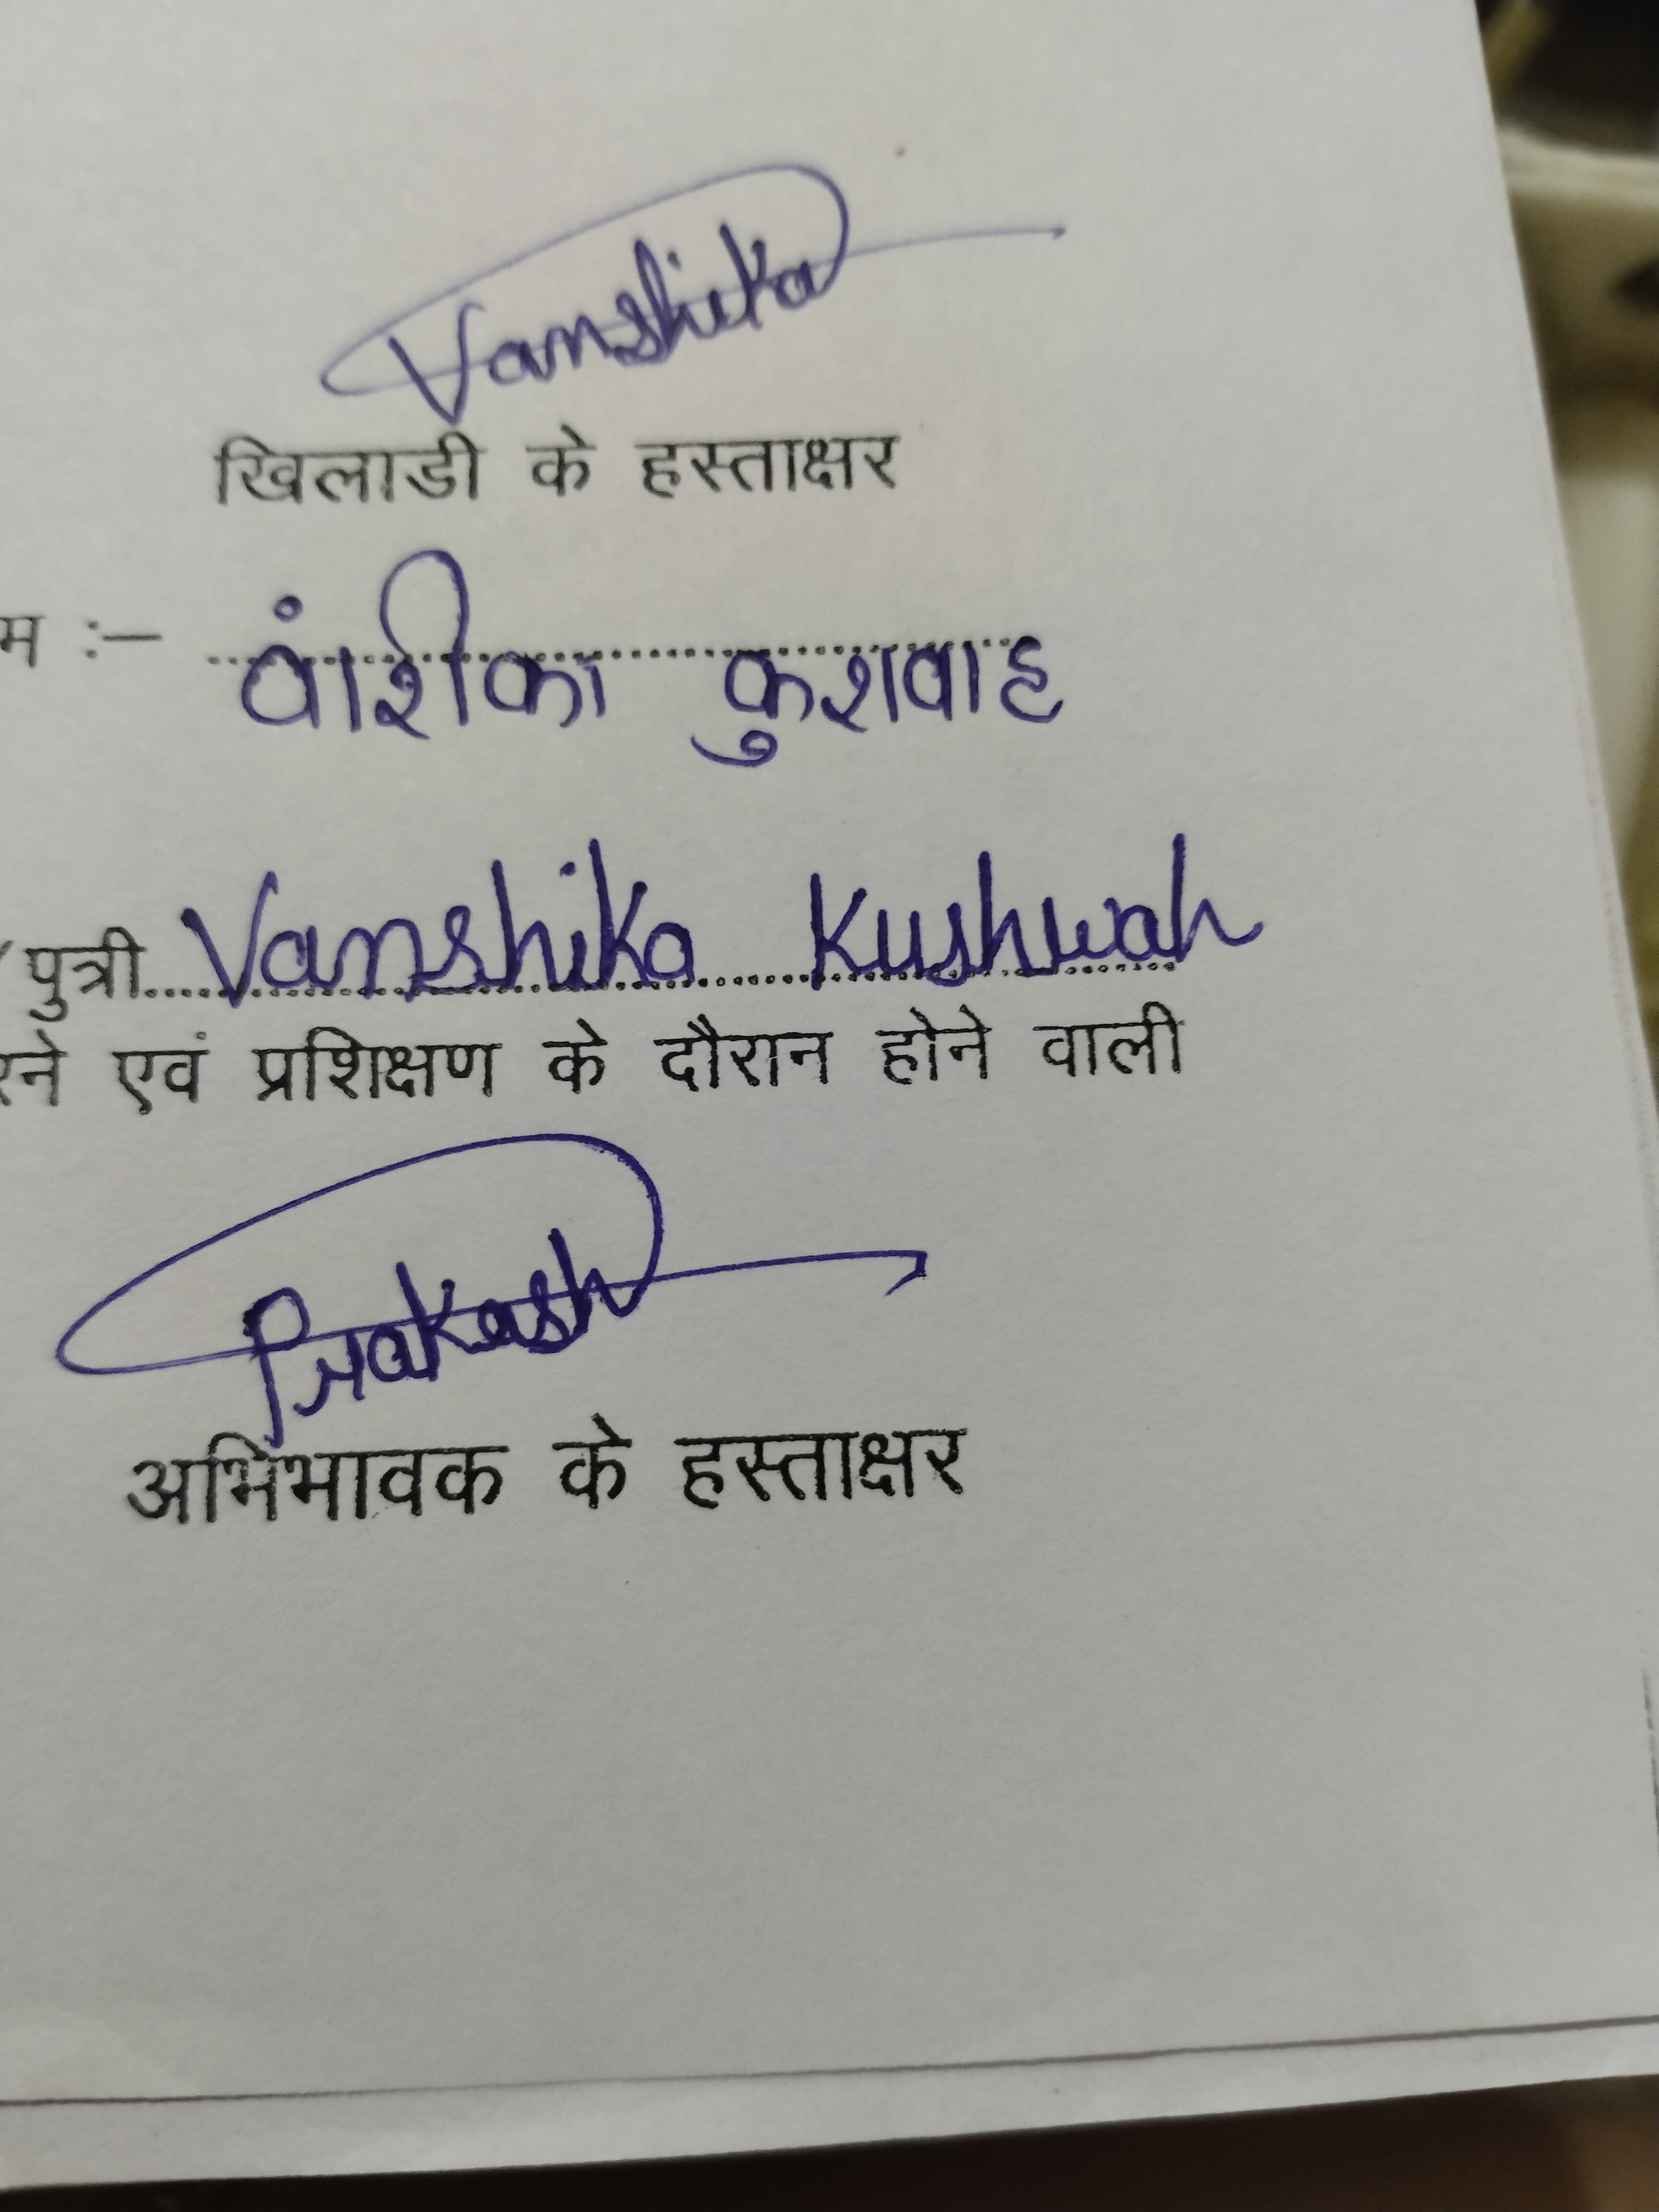 Vanshika
खिलाडी के हस्ताक्षर
म :– वांशीका कुशवाह
पुत्री Vanshika Kushwah
रने एवं प्रशिक्षण के दौरान होने वाली
Prakash
अभिभावक के हस्ताक्षर